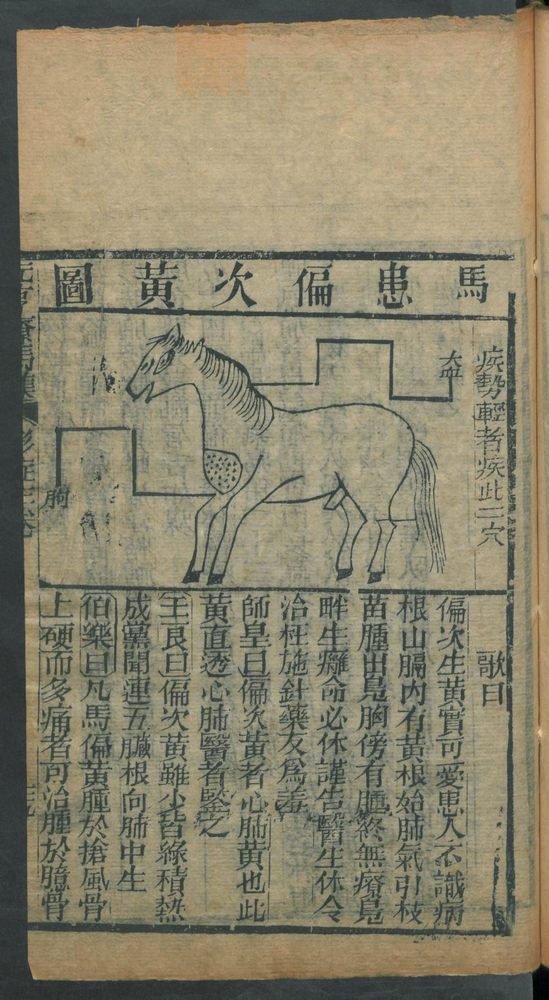 馬患偏次黃圖
疾勢輕者疾此二穴
胸
歌曰
偏次生黃實可愛患人不識病
根山膈內有黃根始肺氣引枝
苗腫出鳧胸傍有腫終無療鳧
畔生癰命必休謹告醫生休令
治枉施針藥友為羞
師皇曰偏次黃者心肺黃也此
黃直透心肺醫者鑒之
王良曰偏次黃雖少皆緣積熱
成黨聞連五臟根向肺中生
伯樂曰凡馬偏黃腫於搶風骨
上硬而多痛者可治腫於臆骨